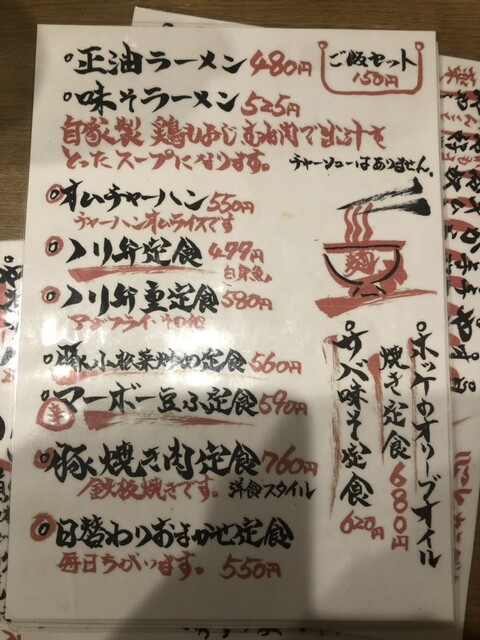 正油ラーメン 480円
ご飯セット
150円
味そラーメン 525円
自家製 鶏もよじむね肉で出汁を
とったスープになります。 チャーシューはありません。
オムチャーハン 550円
チャーハンオムライスです
ノリ弁定食 499円
白身魚
ノリ弁重定食 580円
アジフライ・その他
豚小松菜炒め定食 560円
辛 マーボー豆ふ定食 590円
豚焼き肉定食 760円
鉄板焼きです。 洋食スタイル
日替わりおまかせ定食
毎日ちがいます。 550円
麺
ホッケのオリーブオイル
焼き定食 680円
サバ味そ定食 620円